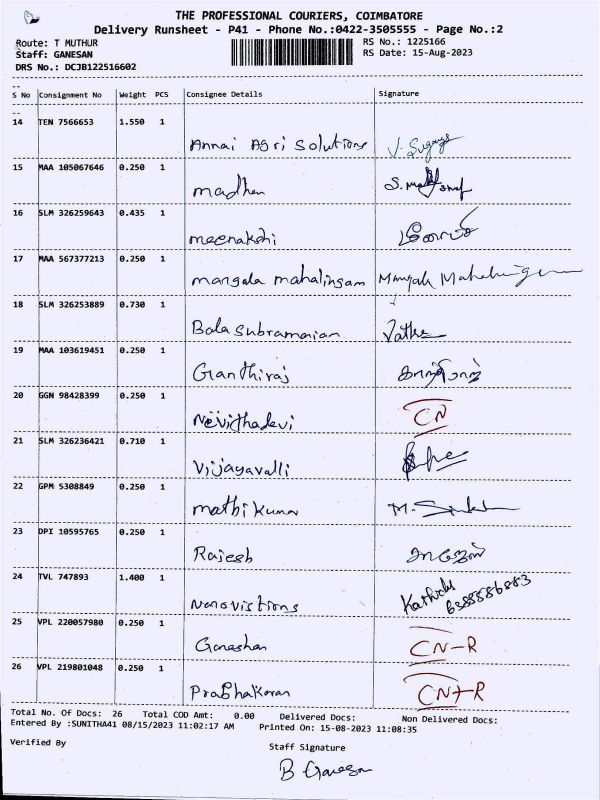 THE PROFESSIONAL COURIERS, COIMBATORE
Delivery Runsheet - P41 - Phone No.:0422-3505555 - Page No.:2
Route: T MUTHUR RS No.: 1225166
Staff: GANESAN RS Date: 15-Aug-2023
DRS No.: DCJB122516602
S No Consignment No Weight PCS Consignee Details Signature
14 TEN 7566653 1.550 1
Annai Agri Solutions V. Suganya
15 MAA 105067646 0.250 1
madhen
16 SLM 326259643 0.435 1
meenakshi
17 MAA 567377213 0.250 1
mangala mahalingam
18 SLM 326253889 0.730 1
Bala subramanian
19 MAA 103619451 0.250 1
Ganthiraj
20 GGN 98428399 0.250 1
Nevithadevi CN
21 SLM 326236421 0.710 1
Vijayavalli
22 GPM 5308849 0.250 1
mathi kumar
23 DPI 10595765 0.250 1
Rajesh
24 TVL 747893 1.400 1
Nanovistions 6388886883
25 VPL 220057980 0.250 1
Ganashan CN-R
26 VPL 219801048 0.250 1
Prabhakaran CN-R
Total No. Of Docs: 26 Total COD Amt: 0.00 Delivered Docs: Non Delivered Docs:
Entered By :SUNITHA41 08/15/2023 11:02:17 AM Printed On: 15-08-2023 11:08:35
Verified By Staff Signature
B Ganesan